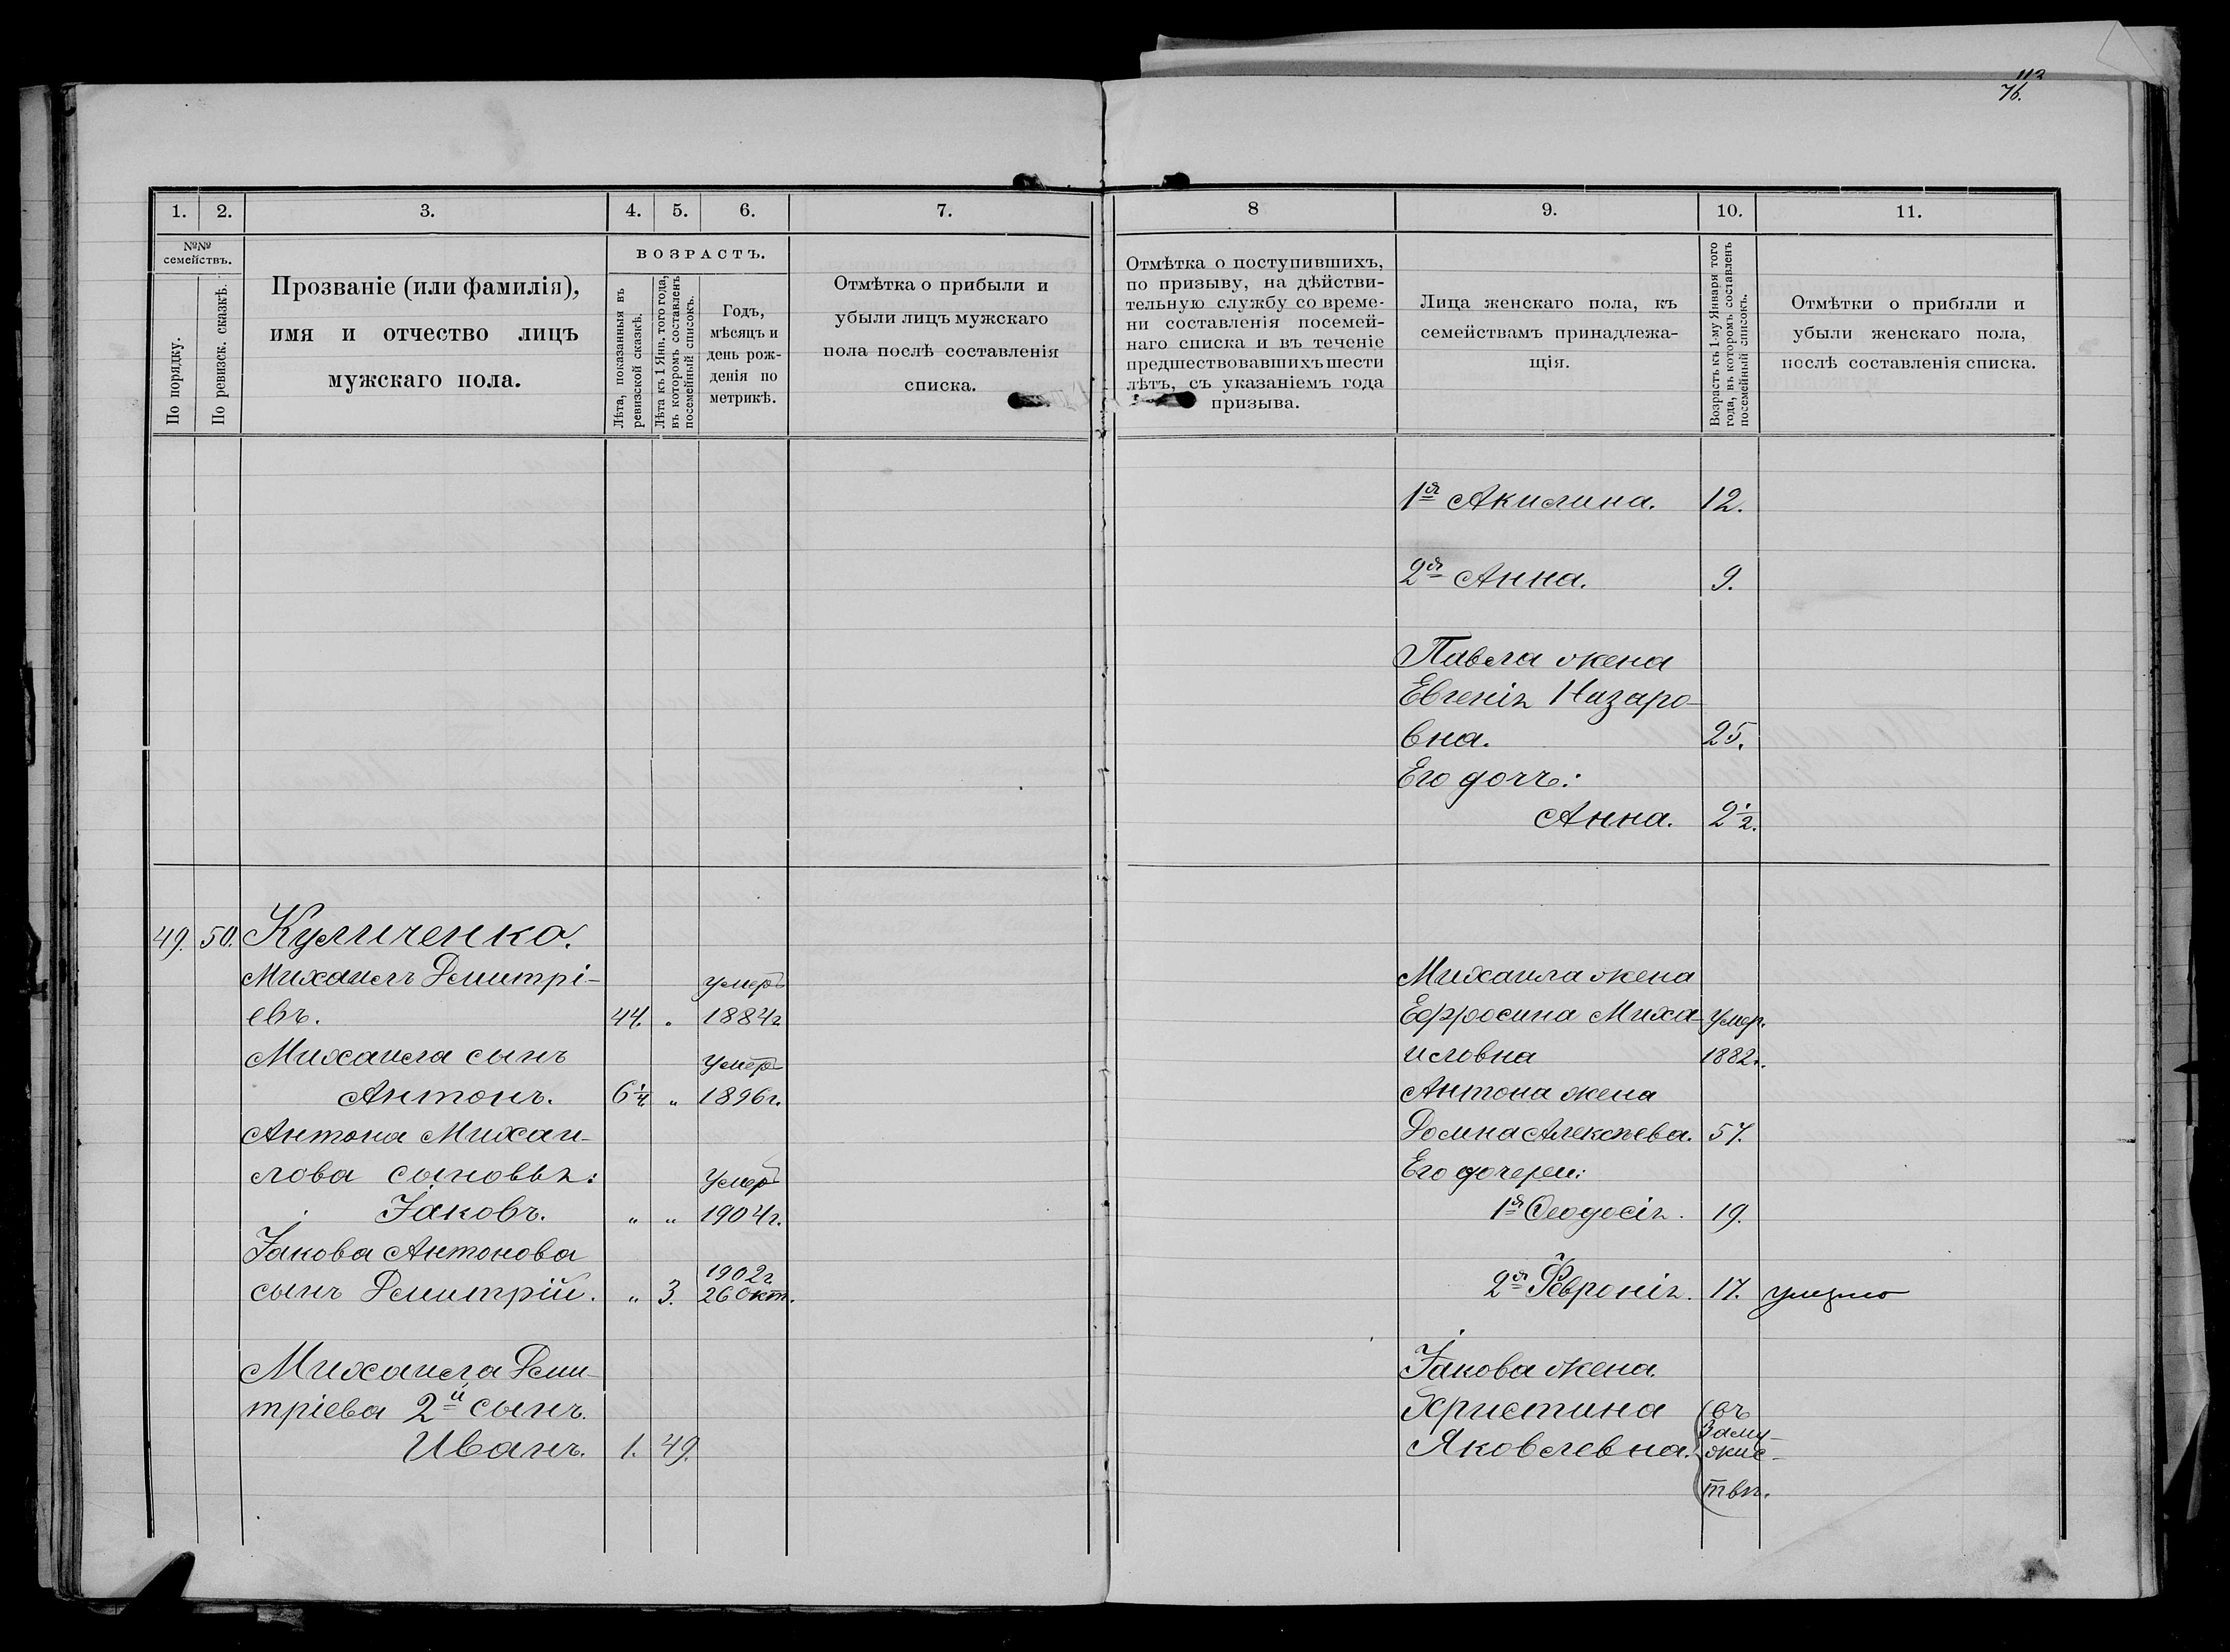 112
76.
1.
2.
3.
4.
5.
6.
7.
№№
семействъ.
По порядку.
По ревизск. сказкѣ.
Прозваніе (или фамилія),
имя и отчество лицъ
мужскаго пола.
ВОЗРАСТЪ.
Лѣта, показанныя въ
ревизской сказкѣ.
Лѣта къ 1 Янв. того года,
въ которомъ составленъ
посемейный списокъ.
Годъ,
мѣсяцъ и
день рож-
денія по
метрикѣ.
Отмѣтка о прибыли и
убыли лицъ мужскаго
пола послѣ составленія
списка.
49. 50. Куличенко.
Михаилъ Димитрі- умеръ
евъ. 44. „ 1884г
Михаила сынъ умеръ
Антонъ. 6¼ „ 1896г.
Антона Михаи-
лова сыновья: умеръ
Іаковъ. „ „ 1904г.
Іакова Антонова 1902г
сынъ Димитрій. „ 3. 26 Окт.
Михаила Дими-
тріева 2й сынъ.
Иванъ. 1. 49.
8
9.
10.
11.
Отмѣтка о поступившихъ,
по призыву, на дѣйстви-
тельную службу со време-
ни составленія посемей-
наго списка и въ теченіе
предшествовавшихъ шести
лѣтъ, съ указаніемъ года
призыва.
Лица женскаго пола, къ
семействамъ принадлежа-
щія.
Возрастъ къ 1-му Января того
года, въ которомъ составленъ
посемейный списокъ.
Отмѣтки о прибыли и
убыли женскаго пола,
послѣ составленія списка.
1я Акилина. 12.
2я Анна. 9.
Павла жена
Евгенія Назаро-
вна. 25.
Его дочь:
Анна. 2½.
Михаила жена
Ефросина Миха- умер.
иловна 1882г.
Антона жена
Домна Алексѣева. 57.
Его дочери:
1я Ѳеодосія. 19.
2я Февронія. 17.
Іакова жена
Христина (въ
Заму-
Яковлевна. жис-
твѣ.